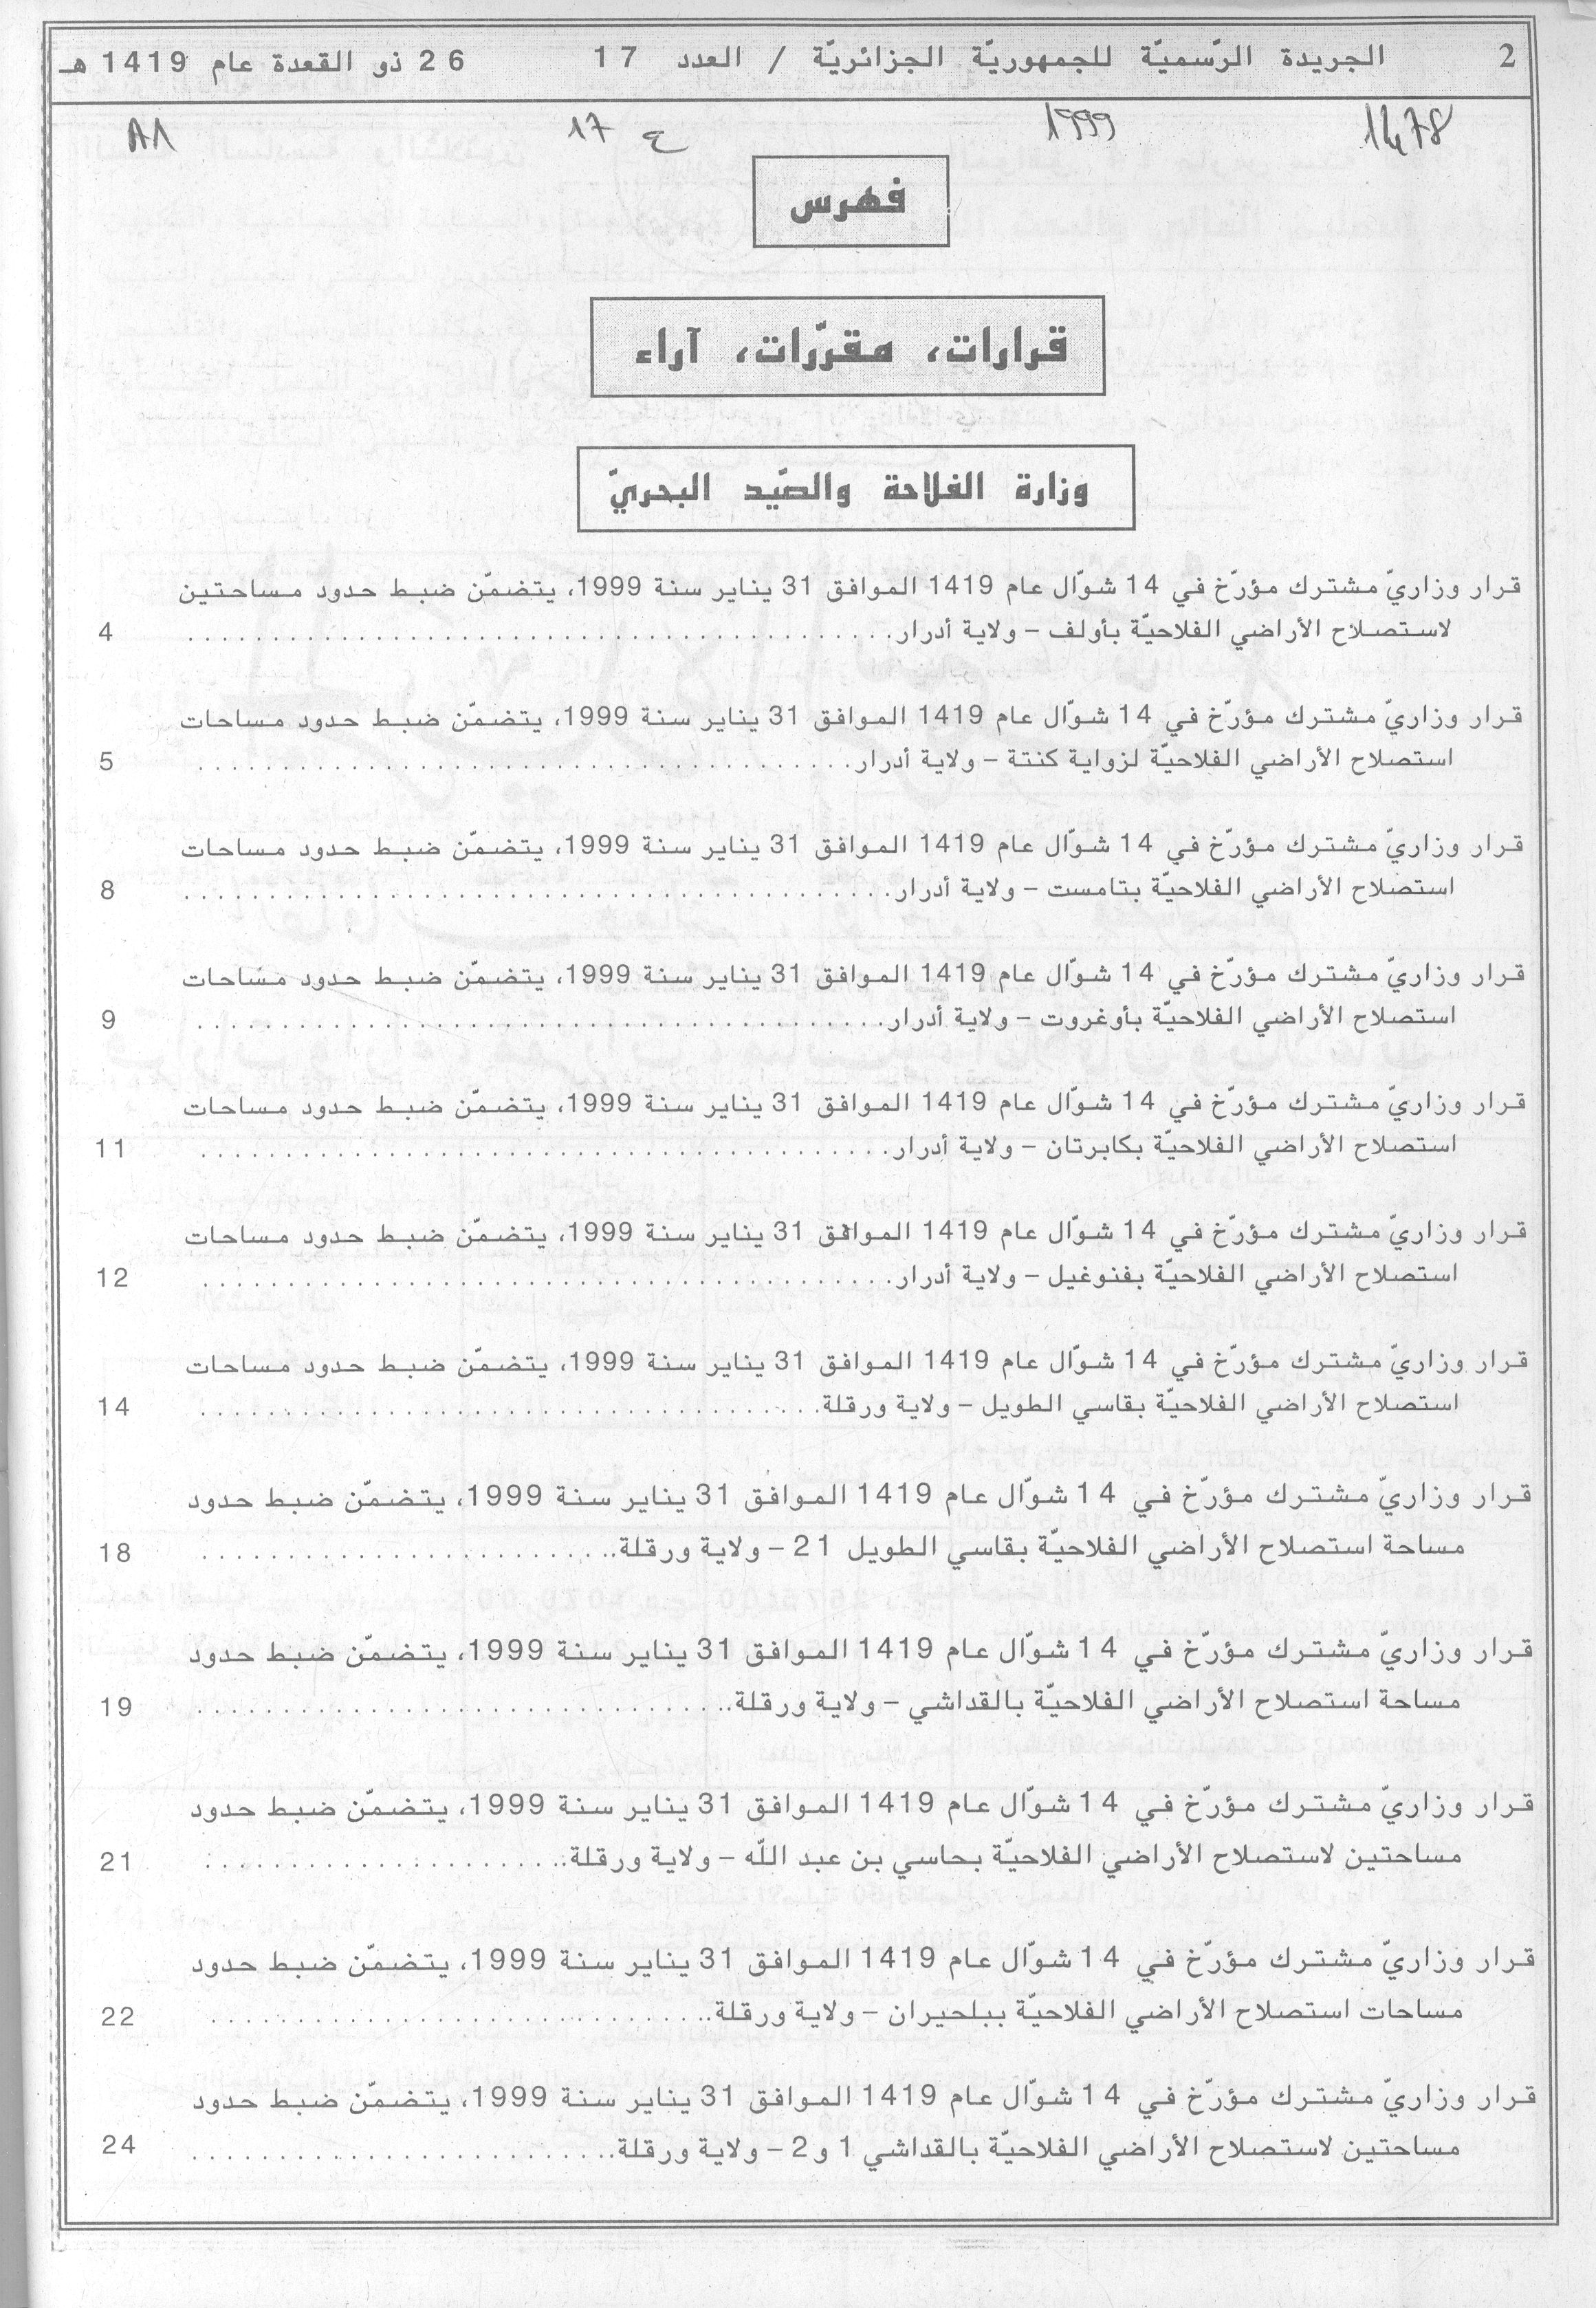 2 الجريدة الرّسميّة للجمهوريّة الجزائريّة / العدد 17 26 ذو القعدة عام 1419 هـ
1478 1999 ع 17 A1
فهرس
قرارات، مقرّرات، آراء
وزارة الفلاحة والصّيد البحريّ
قرار وزاريّ مشترك مؤرّخ في 14 شوّال عام 1419 الموافق 31 يناير سنة 1999، يتضمّن ضبط حدود مساحتين
لاستصلاح الأراضي الفلاحيّة بأولف – ولاية أدرار............................................ 4
قرار وزاريّ مشترك مؤرّخ في 14 شوّال عام 1419 الموافق 31 يناير سنة 1999، يتضمّن ضبط حدود مساحات
استصلاح الأراضي الفلاحيّة لزواية كنتة – ولاية أدرار............................................ 5
قرار وزاريّ مشترك مؤرّخ في 14 شوّال عام 1419 الموافق 31 يناير سنة 1999، يتضمّن ضبط حدود مساحات
استصلاح الأراضي الفلاحيّة بتامست – ولاية أدرار............................................ 8
قرار وزاريّ مشترك مؤرّخ في 14 شوّال عام 1419 الموافق 31 يناير سنة 1999، يتضمّن ضبط حدود مساحات
استصلاح الأراضي الفلاحيّة بأوغروت – ولاية أدرار............................................ 9
قرار وزاريّ مشترك مؤرّخ في 14 شوّال عام 1419 الموافق 31 يناير سنة 1999، يتضمّن ضبط حدود مساحات
استصلاح الأراضي الفلاحيّة بكابرتان – ولاية أدرار............................................ 11
قرار وزاريّ مشترك مؤرّخ في 14 شوّال عام 1419 الموافق 31 يناير سنة 1999، يتضمّن ضبط حدود مساحات
استصلاح الأراضي الفلاحيّة بفنوغيل – ولاية أدرار............................................ 12
قرار وزاريّ مشترك مؤرّخ في 14 شوّال عام 1419 الموافق 31 يناير سنة 1999، يتضمّن ضبط حدود مساحات
استصلاح الأراضي الفلاحيّة بقاسي الطويل – ولاية ورقلة............................................ 14
قرار وزاريّ مشترك مؤرّخ في 14 شوّال عام 1419 الموافق 31 يناير سنة 1999، يتضمّن ضبط حدود
مساحة استصلاح الأراضي الفلاحيّة بقاسي الطويل 21 – ولاية ورقلة.............................. 18
قرار وزاريّ مشترك مؤرّخ في 14 شوّال عام 1419 الموافق 31 يناير سنة 1999، يتضمّن ضبط حدود
مساحة استصلاح الأراضي الفلاحيّة بالقداشي – ولاية ورقلة.................................. 19
قرار وزاريّ مشترك مؤرّخ في 14 شوّال عام 1419 الموافق 31 يناير سنة 1999، يتضمّن ضبط حدود
مساحتين لاستصلاح الأراضي الفلاحيّة بحاسي بن عبد اللّه – ولاية ورقلة........................ 21
قرار وزاريّ مشترك مؤرّخ في 14 شوّال عام 1419 الموافق 31 يناير سنة 1999، يتضمّن ضبط حدود
مساحات استصلاح الأراضي الفلاحيّة ببلحيران – ولاية ورقلة.................................. 22
قرار وزاريّ مشترك مؤرّخ في 14 شوّال عام 1419 الموافق 31 يناير سنة 1999، يتضمّن ضبط حدود
مساحتين لاستصلاح الأراضي الفلاحيّة بالقداشي 1 و 2 – ولاية ورقلة.............................. 24